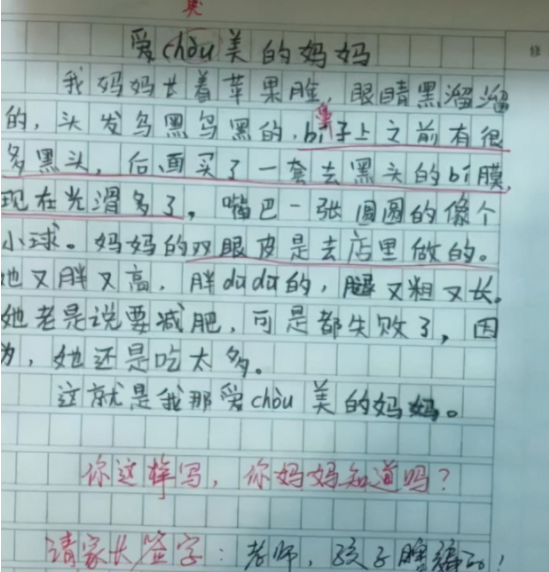 臭
爱chòu美的妈妈
我妈妈长着苹果脸,眼睛黑溜溜
的,头发乌黑乌黑的,bí子上之前有很
鼻
多黑头,后面买了一套去黑头的bí膜,
现在光滑多了,嘴巴一张圆圆的像个
小球。妈妈的双眼皮是去店里做的。
她又胖又高,胖dūdū的,腿又粗又长。
她老是说要减肥,可是都失败了,因
为,她还是吃太多。
这就是我那爱chòu美的妈妈。
你这样写,你妈妈知道吗?
请家长签字:老师,孩子瞎编的!